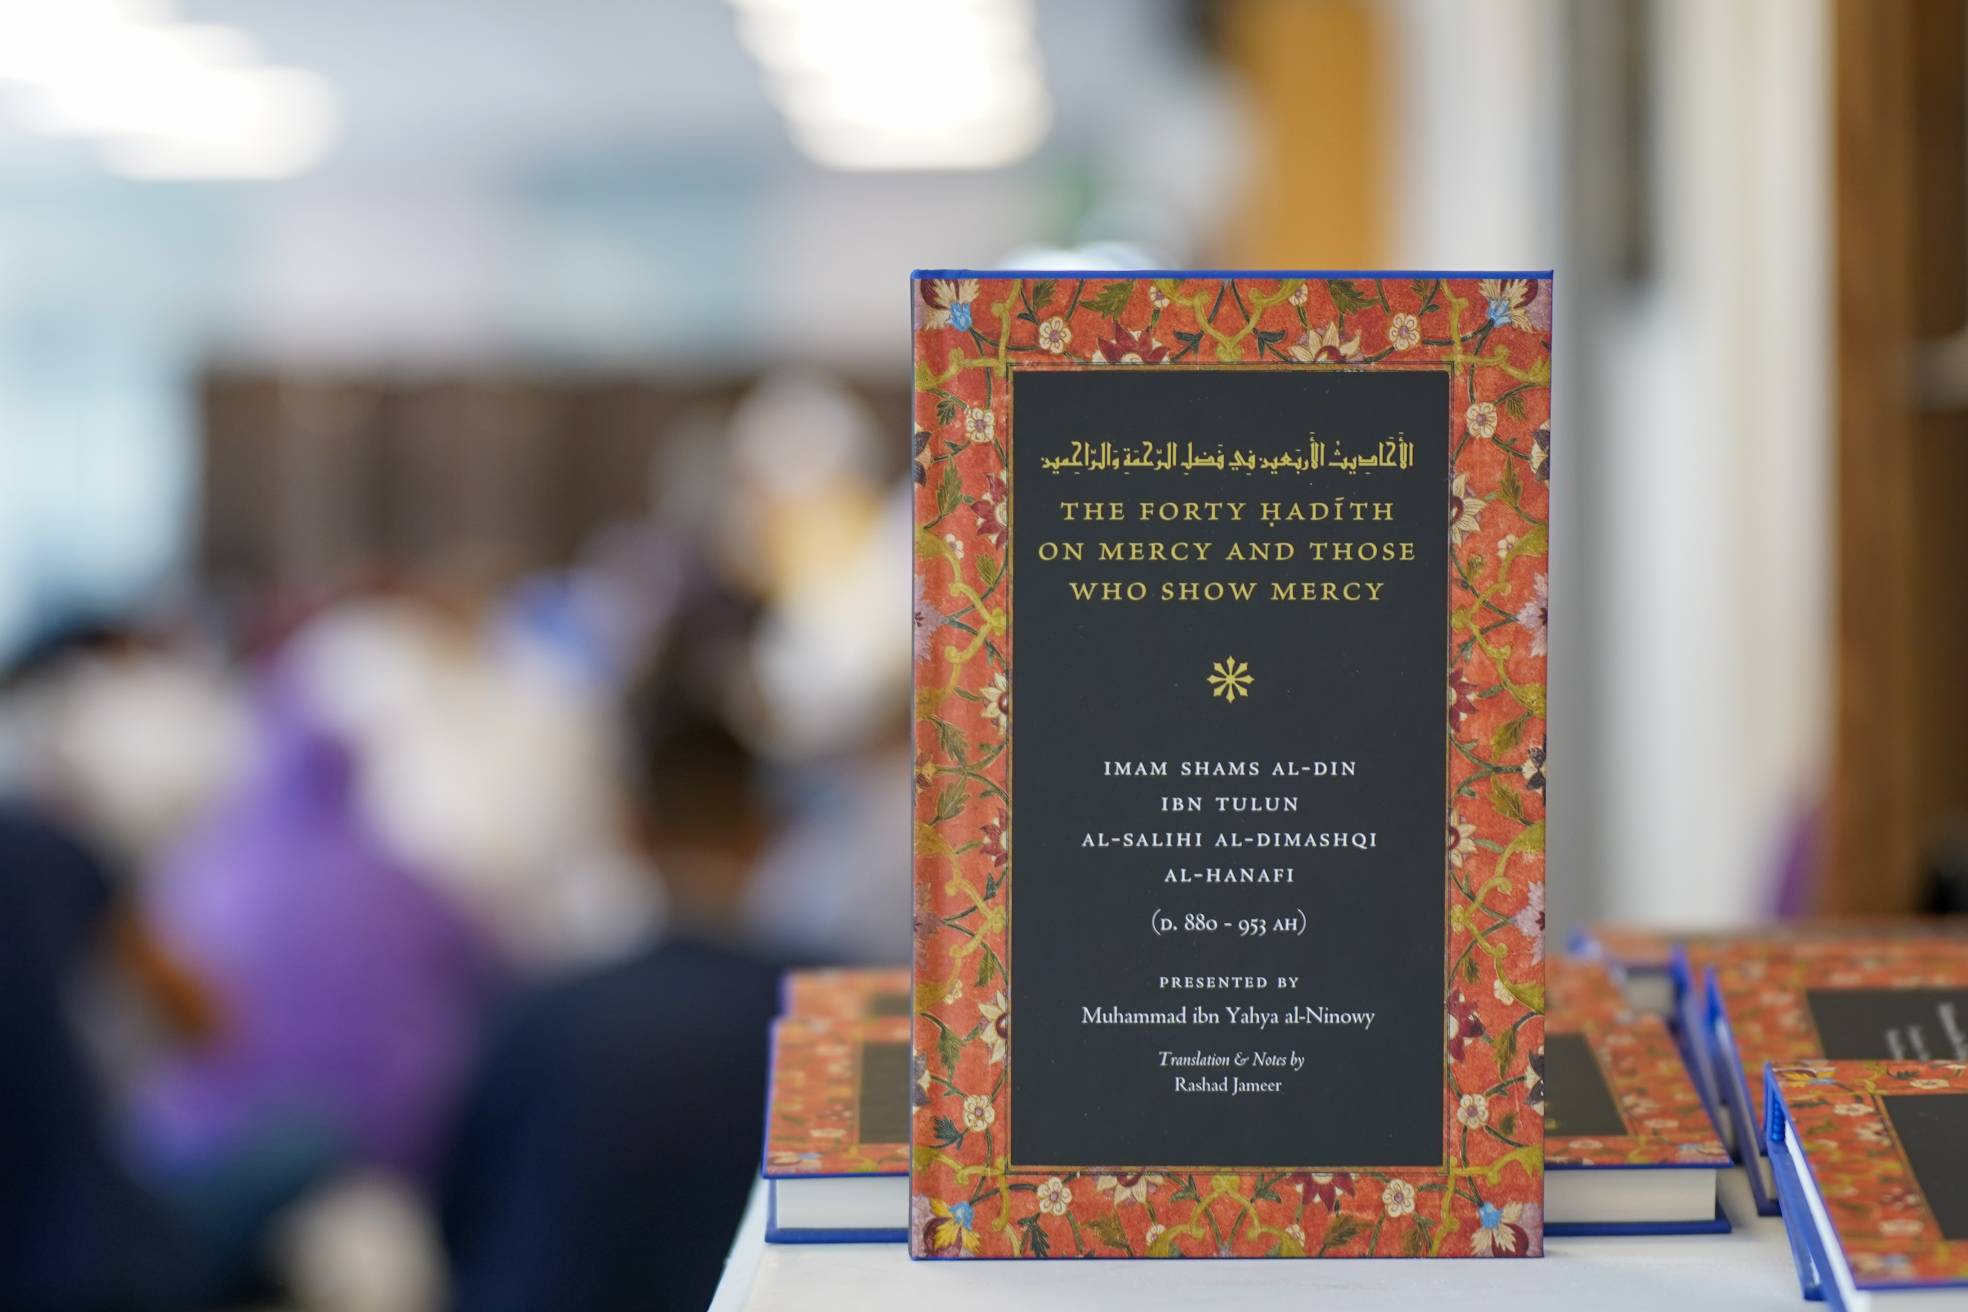 الأَحَادِيثُ الأَربَعِين فِي فَضلِ الرّحمَةِ وَالرّاحِمِين
THE FORTY ḤADĪTH
ON MERCY AND THOSE
WHO SHOW MERCY
IMAM SHAMS AL-DIN
IBN TULUN
AL-SALIHI AL-DIMASHQI
AL-HANAFI
(D. 880 - 953 AH)
PRESENTED BY
Muhammad ibn Yahya al-Ninowy
Translation & Notes by
Rashad Jameer